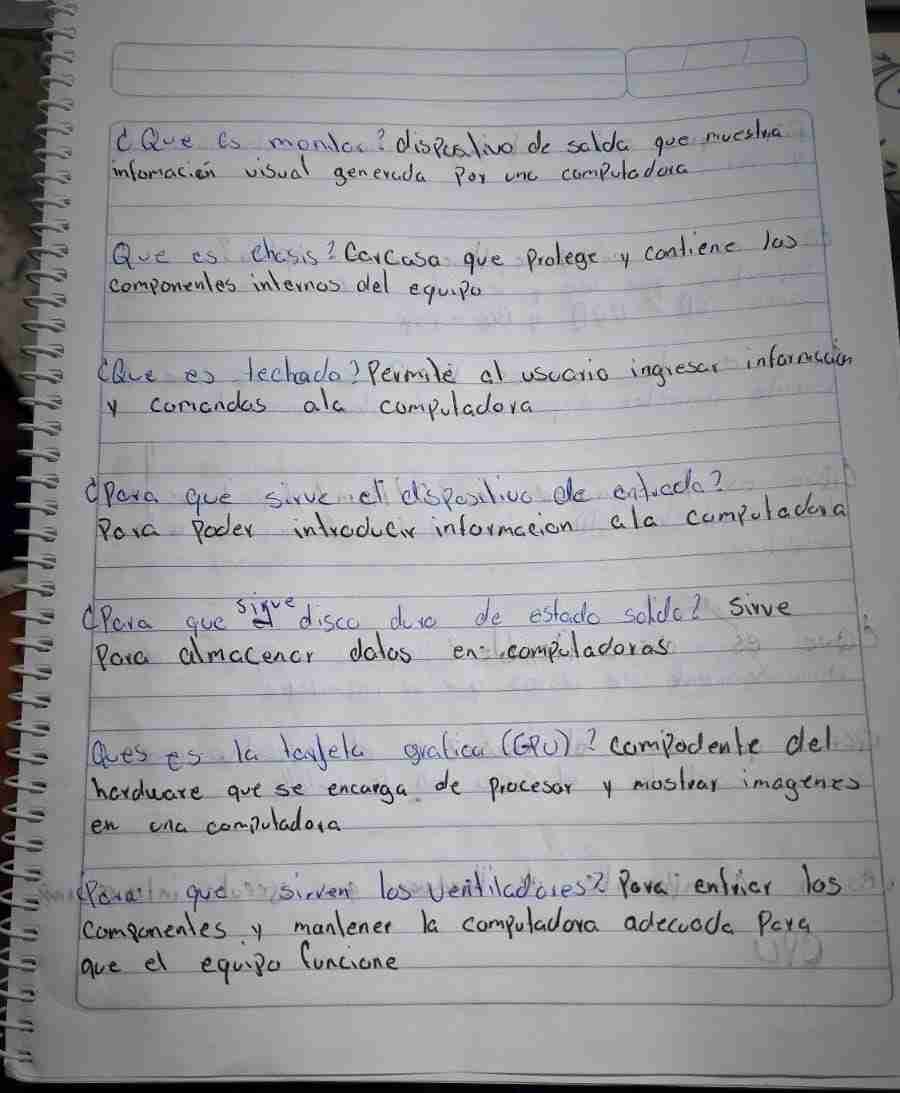 ¿Que es monitor? dispositivo de salda que muestra
infomación visual generada por una computadora
Que es chasis? Carcasa que protege y contiene las
componentes internos del equipo
¿Que es techado? Permite al usuario ingresar información
y comandas ala computadora
¿Para que sirve el dispositivo de entrada?
Para Poder introducir informacion ala computadora
¿Para que sirve disco duro de estado solido? Sirve
para almacenar datos en computadoras
Ques es la tarjeta grafica (GPU)? Compodente del
hardware que se encarga de procesar y mostrar imagenes
en una computadora
¿Para que sirven los ventiladores? Para enfriar los
componentes y mantener la computadora adecuada para
que el equipo funcione